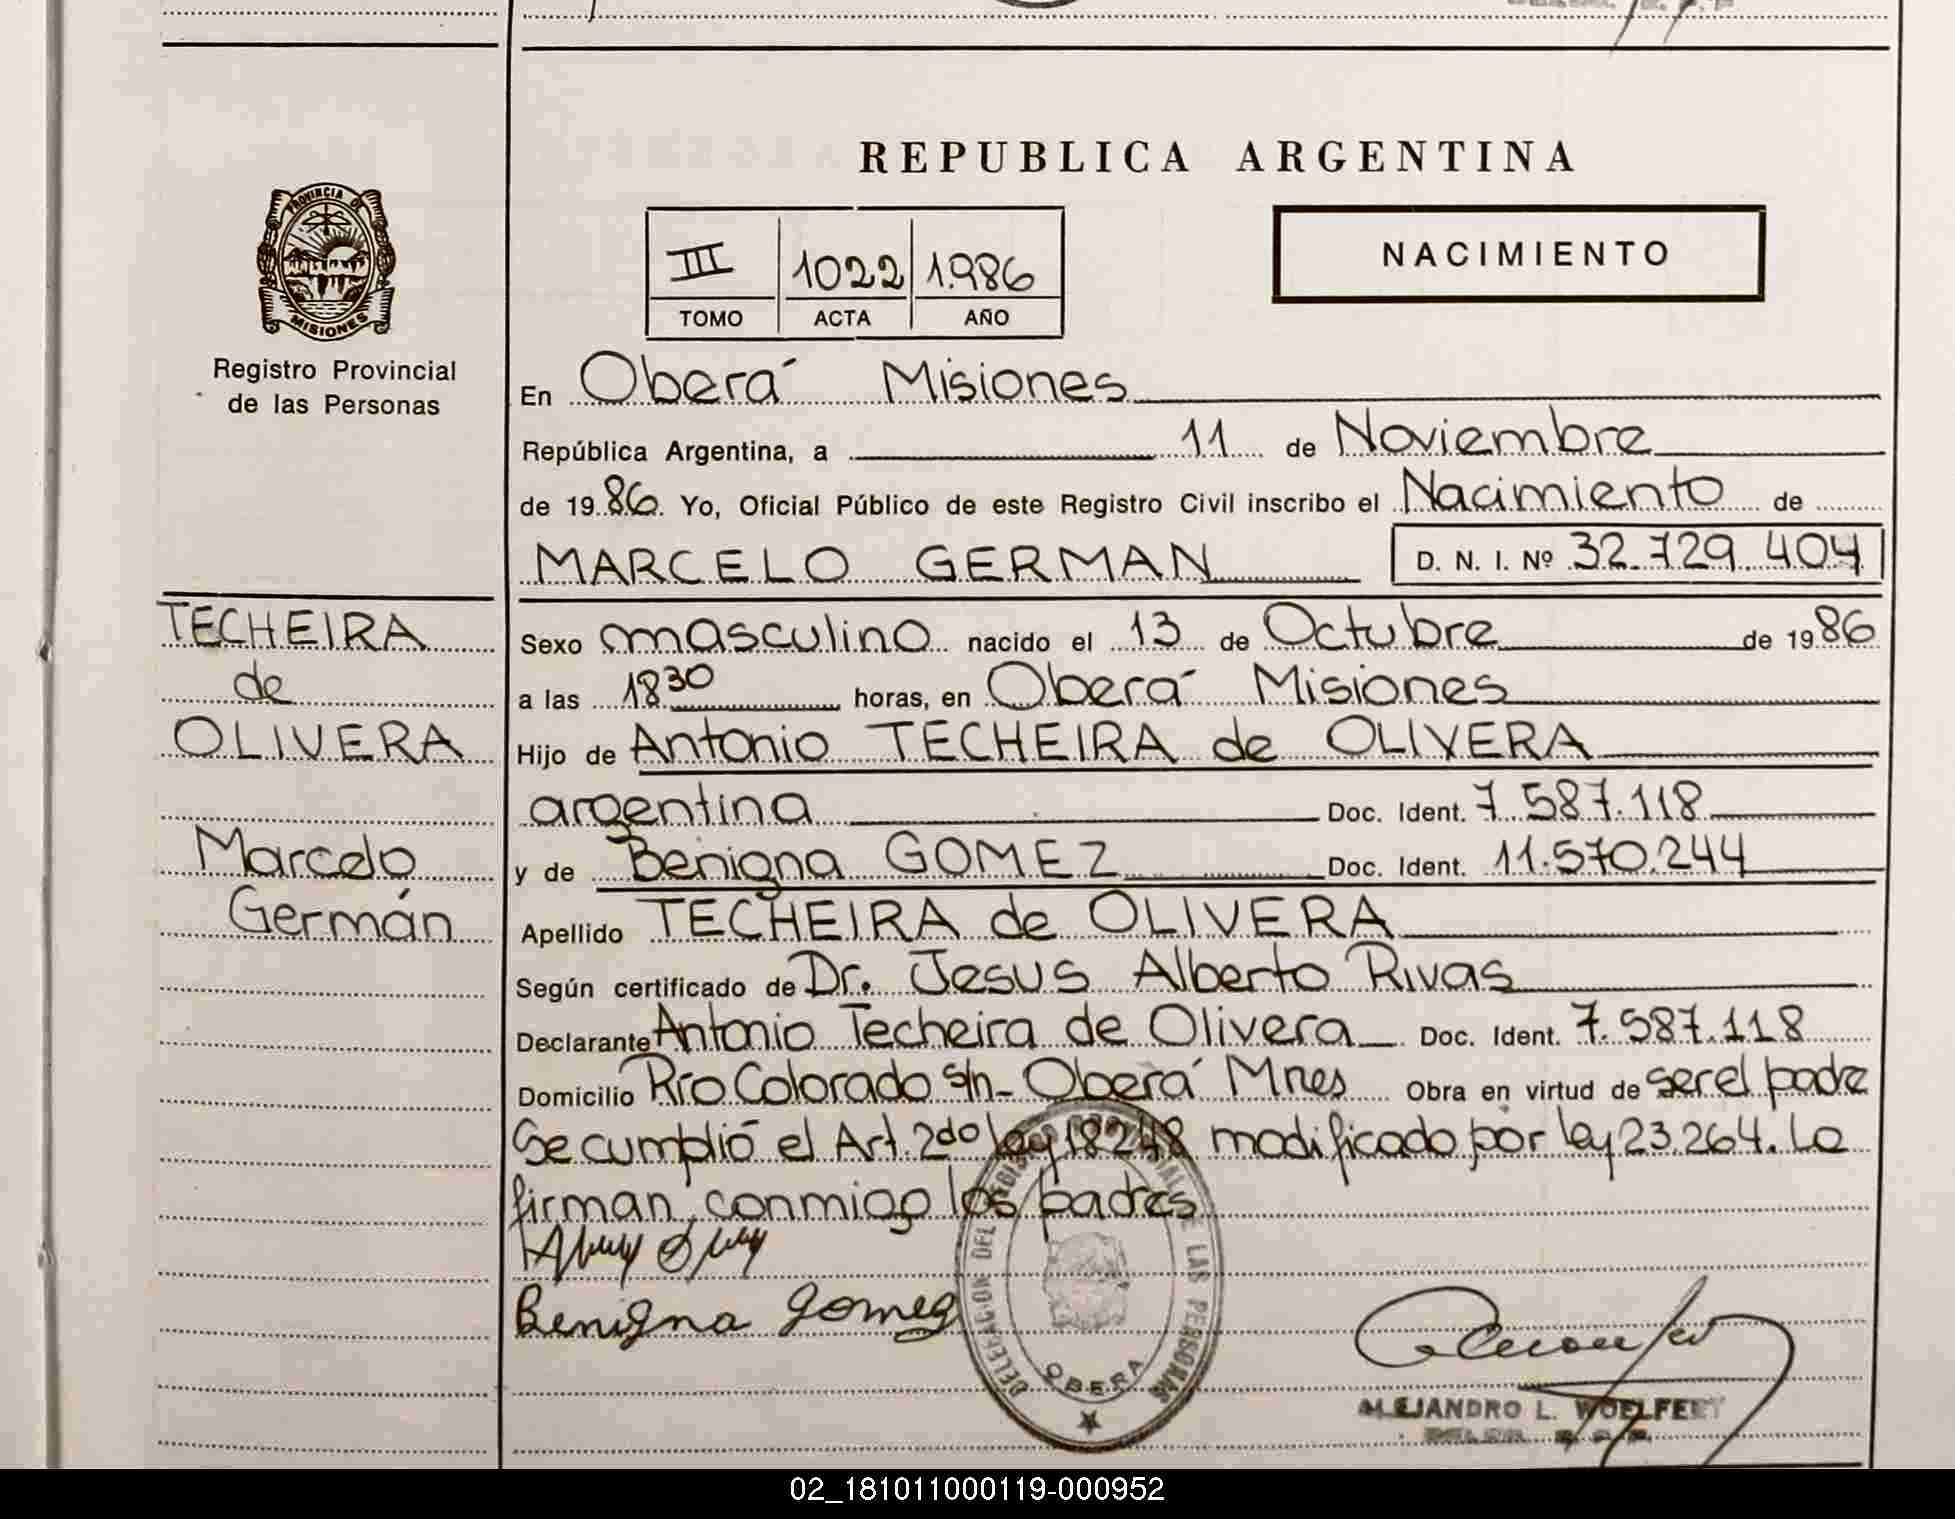 REPUBLICA ARGENTINA
PROVINCIA DE
MISIONES
Registro Provincial
de las Personas
III 1022 1.986
TOMO ACTA AÑO
NACIMIENTO
En Oberá Misiones
República Argentina, a 11 de Noviembre
de 19 86 Yo, Oficial Público de este Registro Civil inscribo el Nacimiento de
MARCELO GERMAN D. N. I. Nº 32.729.404
TECHEIRA
de
OLIVERA
Marcelo
Germán
Sexo masculino nacido el 13 de Octubre de 19 86
a las 18 30 horas, en Oberá Misiones
Hijo de Antonio TECHEIRA de OLIVERA
argentina Doc. Ident. 7.587.118
y de Benigna GOMEZ Doc. Ident. 11.570.244
Apellido TECHEIRA de OLIVERA
Según certificado de Dr. Jesus Alberto Rivas
Declarante Antonio Techeira de Olivera Doc. Ident. 7.587.118
Domicilio Río Colorado s/n- Oberá Mnes Obra en virtud de ser el padre
Se cumplió el Art. 2do ley 18248 modificado por ley 23.264. Lo
firman conmigo los padres
Benigna Gomez
DELEGACION DEL REGISTRO PROVINCIAL DE LAS PERSONAS
OBERA
ALEJANDRO L. WOELFERT
02_181011000119-000952